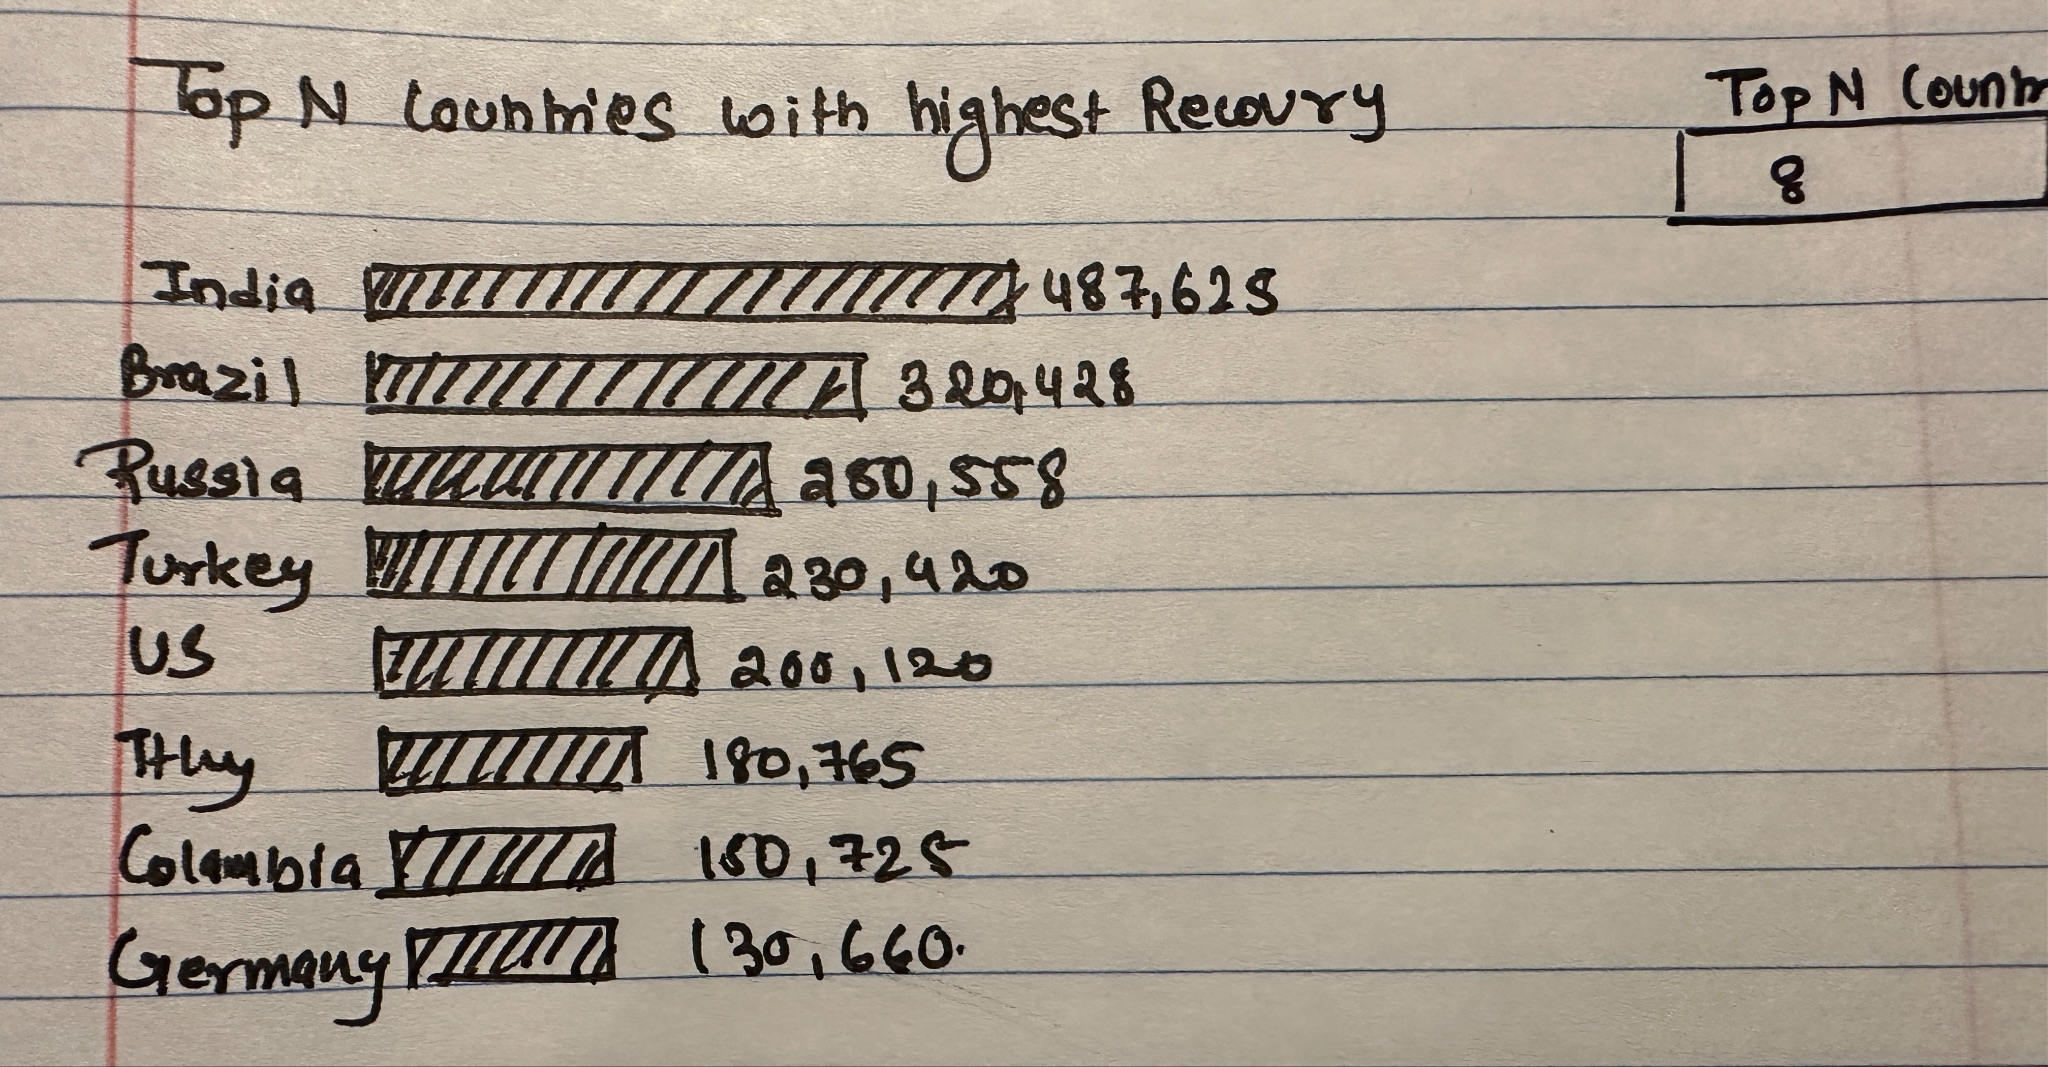 Top N Countries with highest Recovry
Top N Countr
8
India 487,625
Brazil 320,428
Russia 250,558
Turkey 230,420
US 200,120
180,765
Colambia 150,725
Germany 130,660.